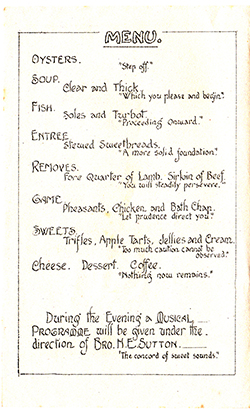 MENU.
OYSTERS.
"Step off."
SOUP.
Clear and Thick.
"Which you please and begin".
FISH.
Soles and Turbot.
"Proceeding Onward."
ENTREE
Stewed Sweetbreads.
"A more solid foundation."
REMOVES.
Fore Quarter of Lamb. Sirloin of Beef.
"You will steadily persevere."
GAME
Pheasants, Chicken and Bath Chap.
"Let prudence direct you."
SWEETS
Trifles, Apple Tarts, Jellies and Cream.
"Too much caution cannot be
observed."
Cheese. Dessert. Coffee.
"Nothing now remains."
During the Evening a MUSICAL
PROGRAMME will be given under the
direction of BRO. H.E. SUTTON.
"The concord of sweet sounds."